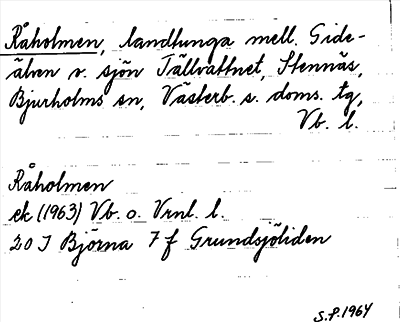 Råholmen, landtunga mell. Gide-
älven o. sjön Tällvattnet, Stennäs,
Bjurholms sn, Västerb. s. doms. tg,
Vb. l.
Råholmen
ek (1963) Vb. o. Vrnl. l.
20 J Björna 7 f Grundsjöliden
S.P. 1964